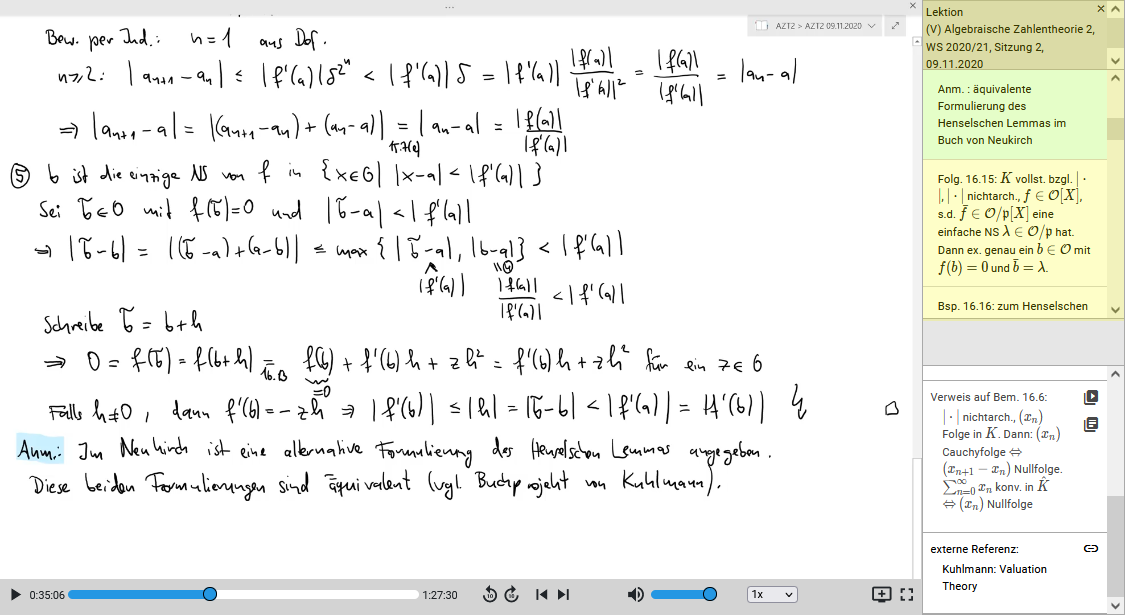 ...
AZT2 > AZT2 09.11.2020
Bew. per Ind.: n=1 aus Def.
n≥2: |aₙ₊₁ − aₙ| ≤ |f'(a)| δ^{2^n} < |f'(a)| δ = |f'(a)| |f(a)|/|f'(a)|² = |f(a)|/|f'(a)| = |aₙ − a|
⇒ |aₙ₊₁ − a| = |(aₙ₊₁ − aₙ) + (aₙ − a)| = |aₙ − a| = |f(a)|/|f'(a)|
⑤ b ist die einzige NS von f in {x∈O | |x−a| < |f'(a)| }
Sei b̃ ∈ O mit f(b̃)=0 und |b̃−a| < |f'(a)|
⇒ |b̃−b| = |(b̃−a)+(a−b)| ≤ max { |b̃−a|, |b−a| } < |f'(a)|
∧ "④
|f'(a)| |f(a)|/|f'(a)| < |f'(a)|
Schreibe b̃ = b+h
⇒ 0 = f(b̃) = f(b+h) = f(b) + f'(b)h + zh² = f'(b)h + zh² für ein z∈O
16.13 =0
Falls h≠0, dann f'(b) = −zh ⇒ |f'(b)| ≤ |h| = |b̃−b| < |f'(a)| = |f'(b)| ↯ □
Anm.: Im Neukirch ist eine alternative Formulierung des Henselschen Lemmas angegeben.
Diese beiden Formulierungen sind äquivalent (vgl. Buchprojekt von Kuhlmann).
0:35:06
1:27:30
10
10
1x
Lektion
(V) Algebraische Zahlentheorie 2,
WS 2020/21, Sitzung 2,
09.11.2020
Anm. : äquivalente
Formulierung des
Henselschen Lemmas im
Buch von Neukirch
Folg. 16.15: K vollst. bzgl. | ·
|, | · | nichtarch., f ∈ O[X],
s.d. f̄ ∈ O/𝔭[X] eine
einfache NS λ ∈ O/𝔭 hat.
Dann ex. genau ein b ∈ O mit
f(b) = 0 und b̄ = λ.
Bsp. 16.16: zum Henselschen
Verweis auf Bem. 16.6:
| · | nichtarch., (xₙ)
Folge in K. Dann: (xₙ)
Cauchyfolge ⇔
(xₙ₊₁ − xₙ) Nullfolge.
∑_{n=0}^∞ xₙ konv. in K̂
⇔ (xₙ) Nullfolge
externe Referenz:
Kuhlmann: Valuation
Theory